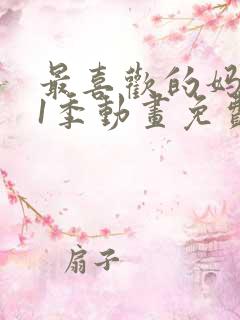 最喜歡的妈
1季動畫免費
扇子